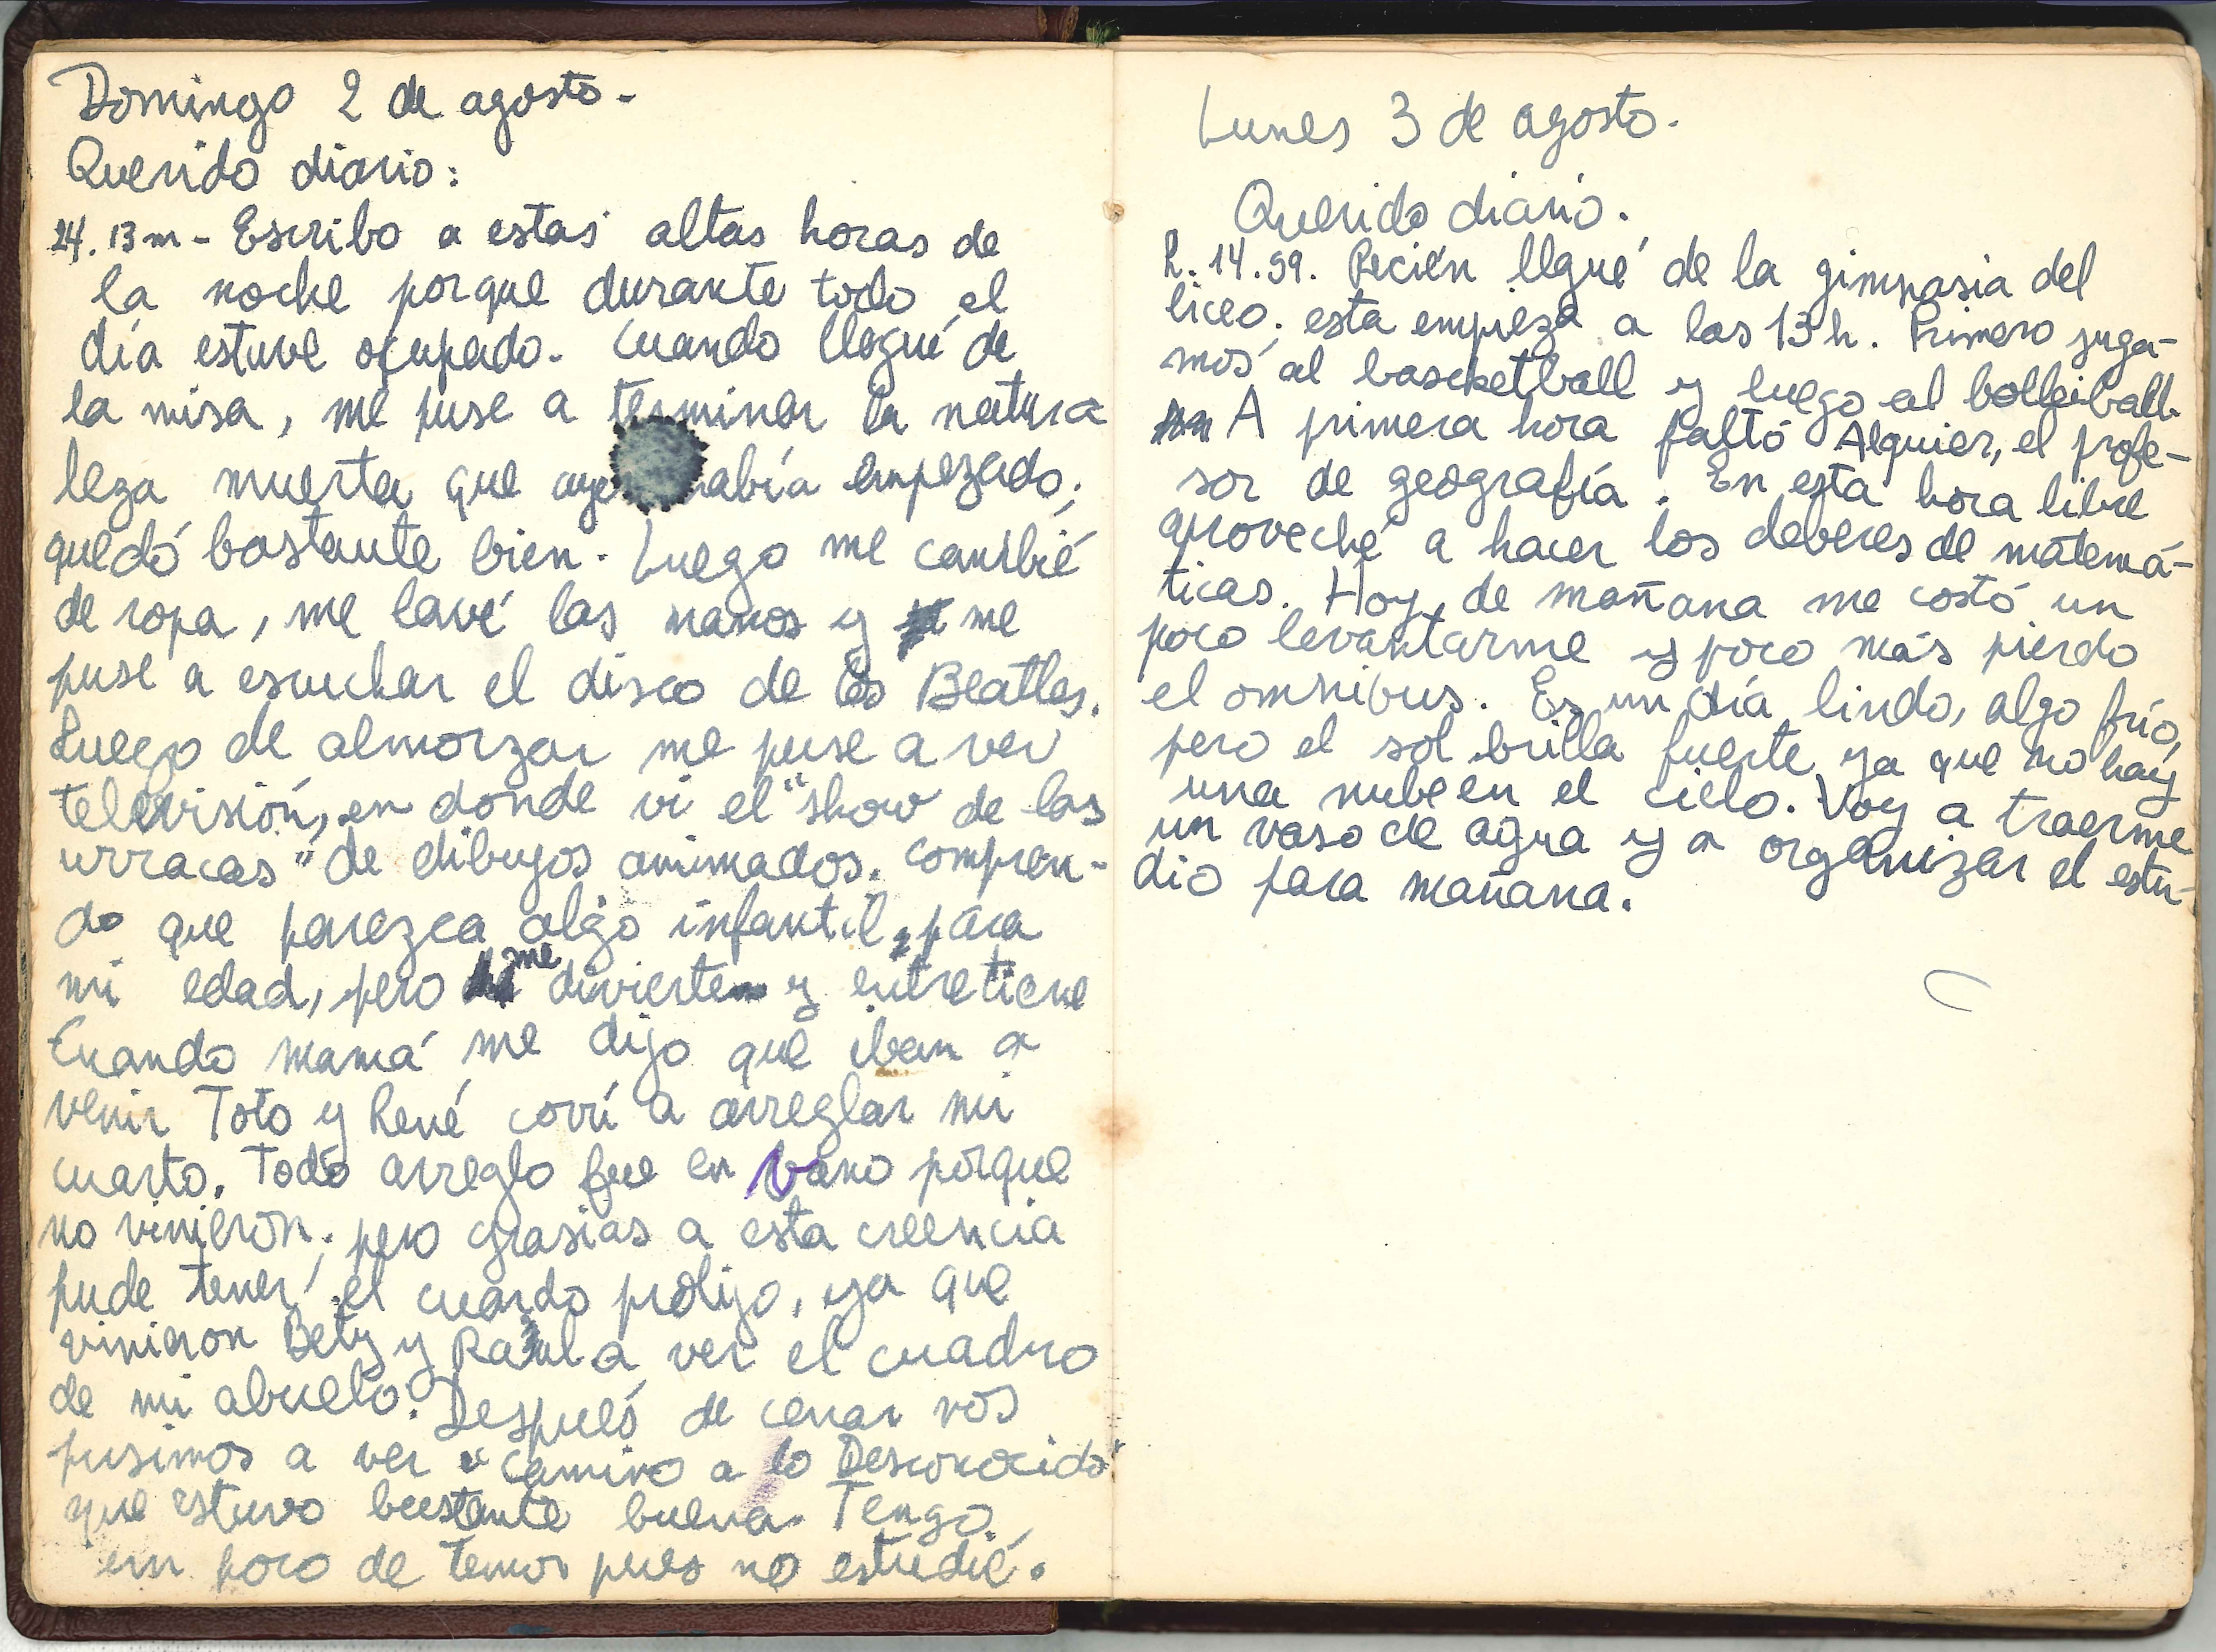 Domingo 2 de agosto.
Querido diario:
24. 13 m - Escribo a estas altas horas de
la noche porque durante todo el
día estuve ocupado. Cuando llegué de
la misa, me puse a terminar la natura
leza muerta que aye había empezado;
quedó bastante bien. Luego me cambié
de ropa, me lavé las manos y me
puse a escuchar el disco de los Beatles.
Luego de almorzar me puse a ver
televisión, en donde vi el "show de las
urracas" de dibujos animados. Compren-
do que parezca algo infantil, para
mi edad, pero me divierte y entretiene
Cuando mamá me dijo que iban a
venir Toto y René corrí a arreglar mi
cuarto. Todo arreglo fue en vano porque
no vinieron; pero grasias a esta creencia
pude tener el cuardo prolijo, ya que
vinieron Bety y Raúl a ver el cuadro
de mi abuelo. Después de cenar nos
pusimos a ver "Camino a lo Desconocido"
que estuvo bastante buena. Tengo
un poco de temor pues no estudié.
Lunes 3 de agosto.
Querido diario.
h. 14.59. Recién llgué de la gimnasia del
liceo; esta empieza a las 13 h. Primero juga-
mos al bascketball y luego al bolleiball.
A primera hora faltó Alguier, el profe-
sor de geografía. En esta hora libre
aproveché a hacer los deberes de matemá-
ticas. Hoy, de mañana me costó un
poco levantarme y poco más pierdo
el omnibus. Es un día lindo, algo frío,
pero el sol brilla fuerte ya que no hay
una nube en el cielo. Voy a traerme
un vaso de agua y a organizar el estu-
dio para mañana.